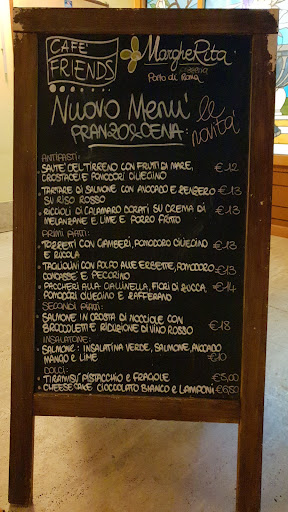 CAFE'
FRIENDS
MargheRita
Porto di Roma
Nuovo Menu'
PRANZO&CENA:
le
novita'
ANTIPASTI:
SAUTE' DEL TIRRENO CON FRUTTI DI MARE, €12
CROSTACEI E POMODORI CILIEGINO
TARTARE DI SALMONE CON AVOCADO E ZENZERO €13
SU RISO ROSSO
RICCIOLI DI CALAMARO DORATI SU CREMA DI €13
MELANZANE E LIME E PORRO FRITTO
PRIMI PIATTI:
CON GAMBERI, POMODORO CILIEGINO €13
E RUCOLA
TAGLIOLINI CON POLPO ALLE ERBETTE, POMODORO €13
CONCASSE E PECORINO
PACCHERI ALLA GALLINELLA, FIORI DI ZUCCA, €14
POMODORI CILIEGINO E ZAFFERANO
SECONDI PIATTI:
SALMONE IN CROSTA DI NOCCIOLE CON €18
BROCCOLETTI E RIDUZIONE DI VINO ROSSO
INSALATONE:
SALMONE: INSALATINA VERDE, SALMONE, AVOCADO
MANGO E LIME €10
DOLCI:
TIRAMISU' PISTACCHIO e FRAGOLE €5,00
CHEESECAKE CIOCCOLATO BIANCO e LAMPONI €6,50